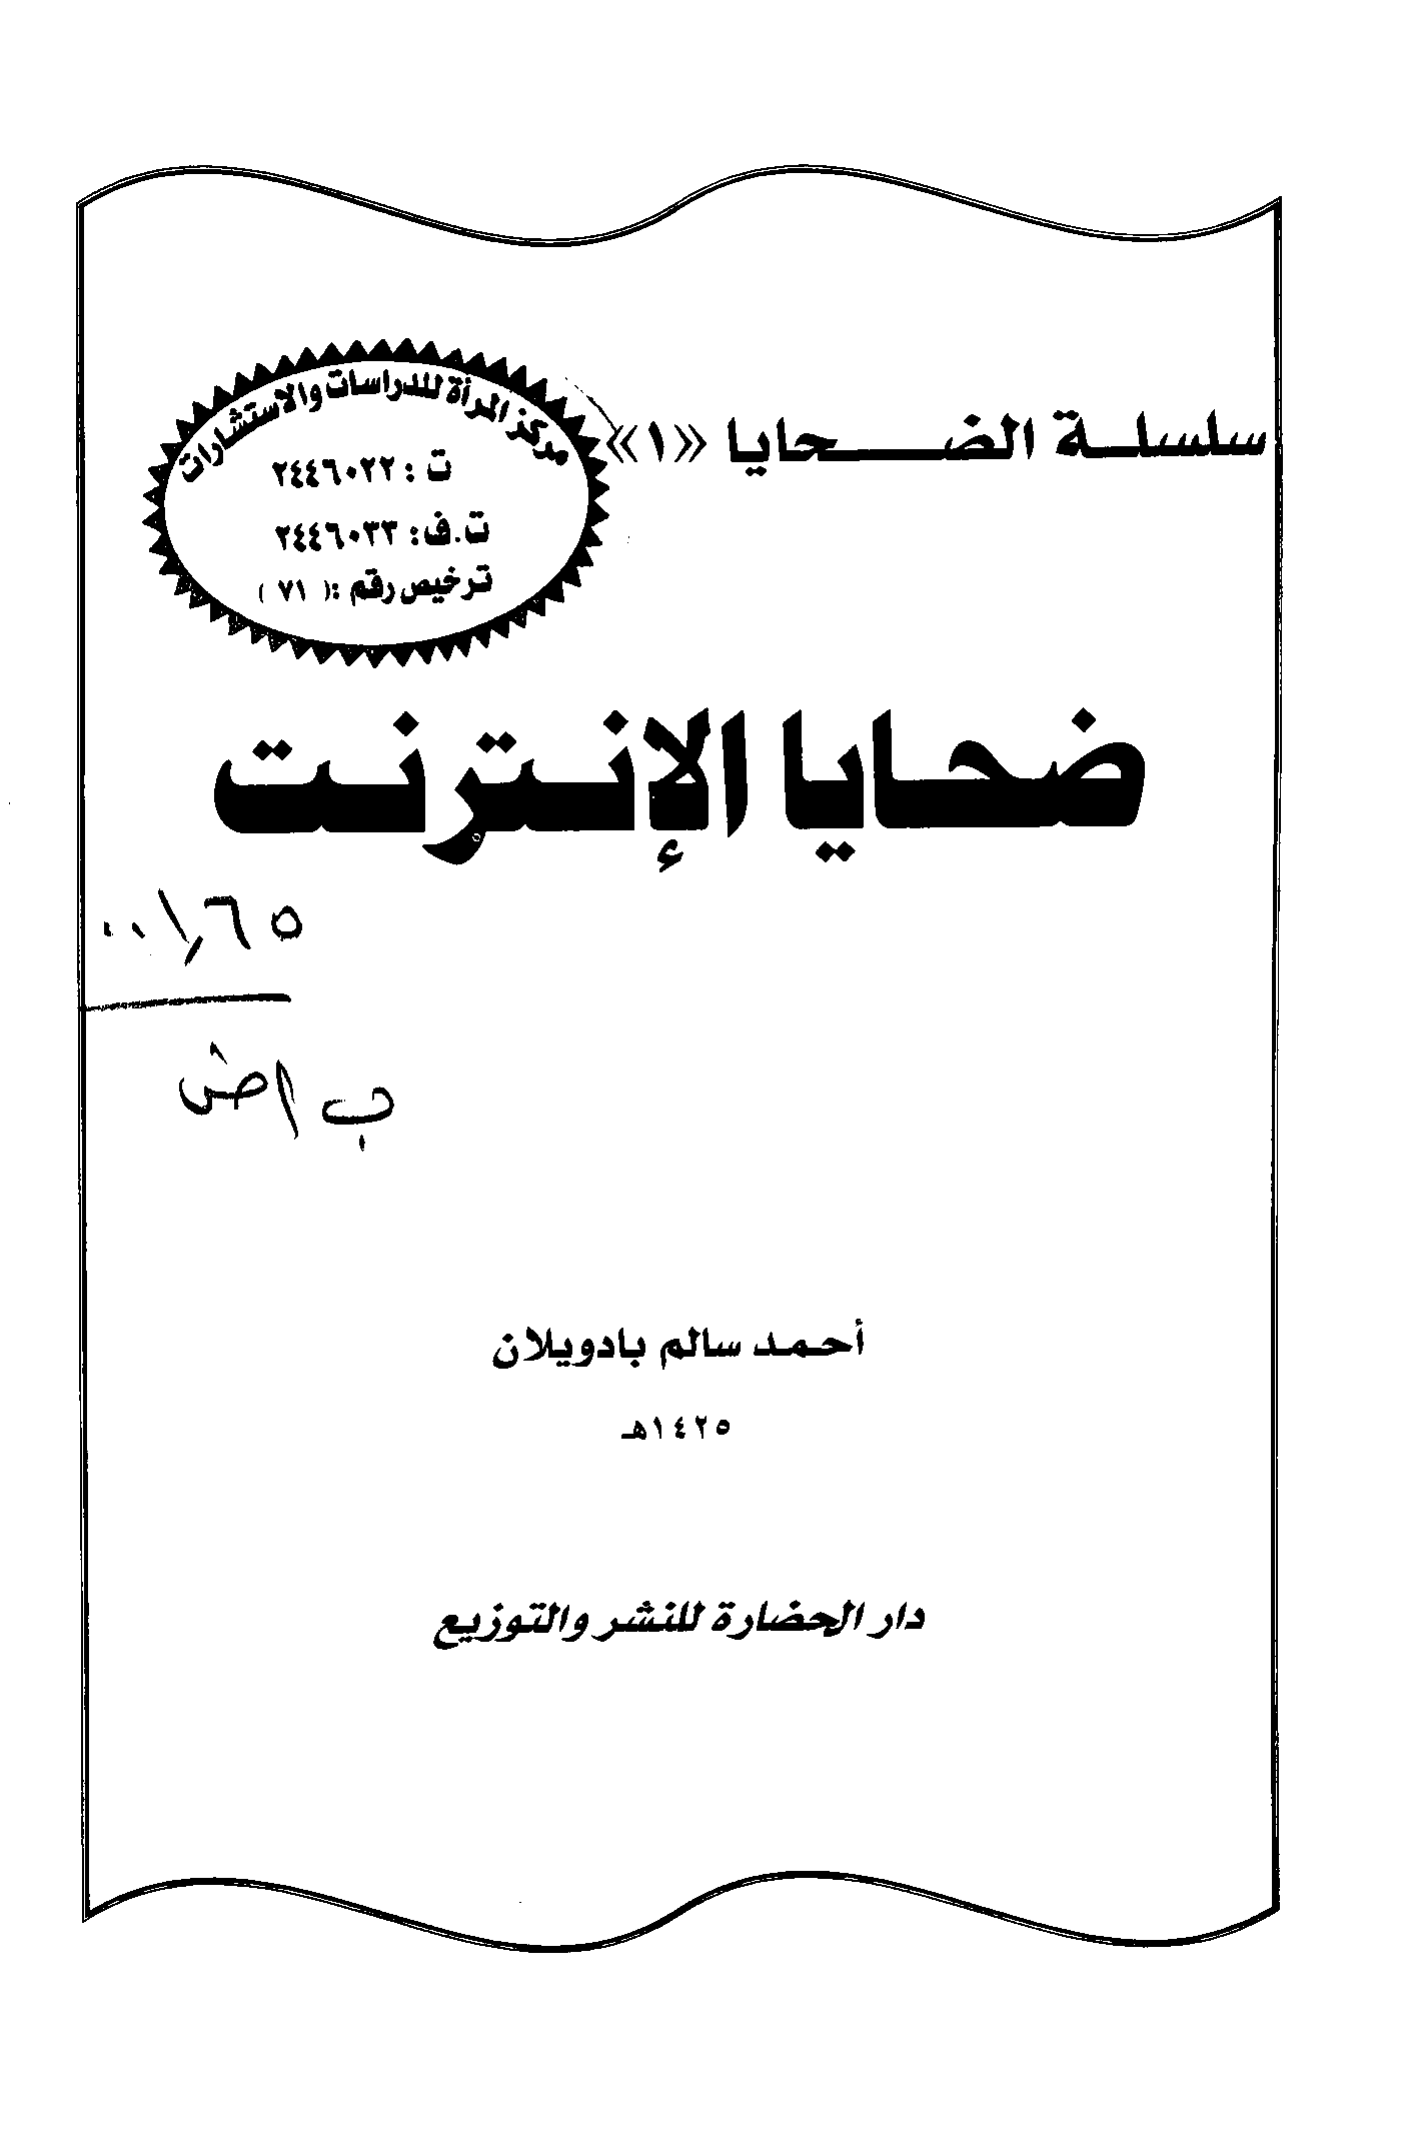 سلسلة الضحايا «١»
مركز المرأة للدراسات والاستشارات
ت : ٢٤٤٦٠٢٢
ت.ف: ٢٤٤٦٠٣٣
ترخيص رقم :( ٧١ )
ضحايا الإنترنت
٠٠١,٦٥
ب اض
أحمد سالم بادويلان
١٤٢٥هـ
دار الحضارة للنشر والتوزيع